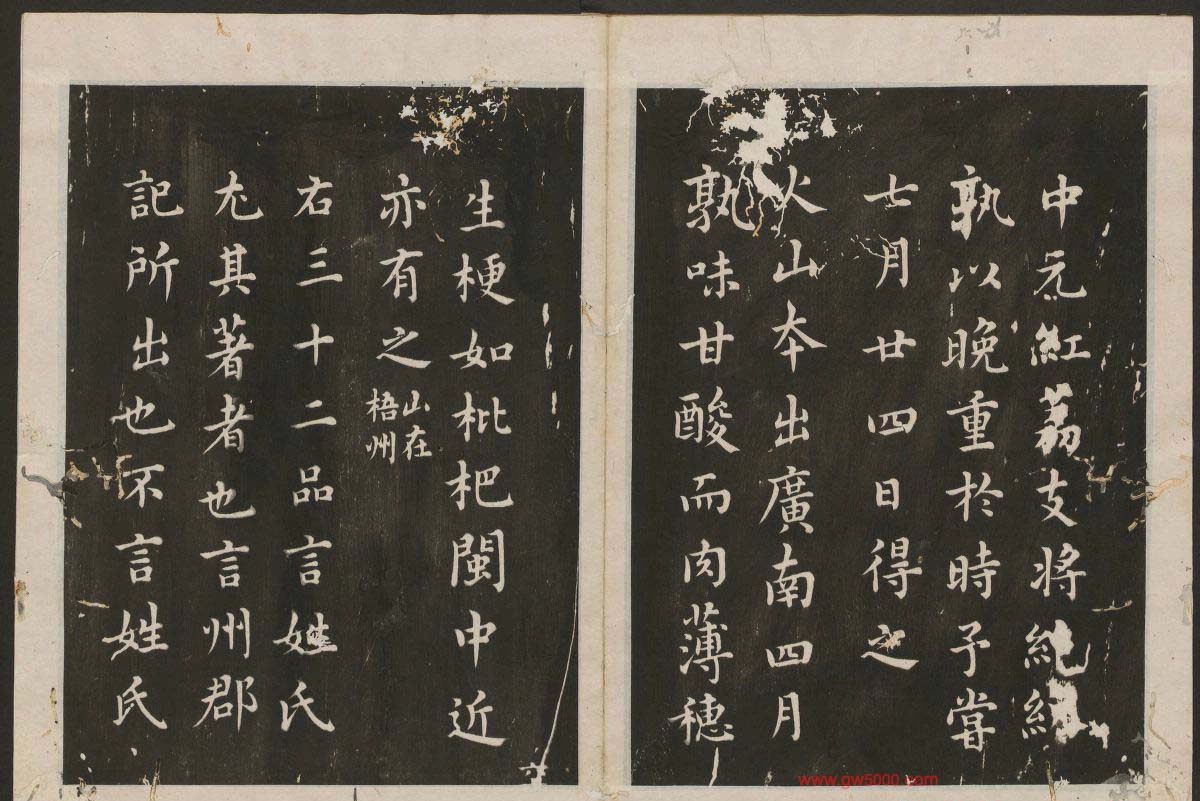 中元紅荔支將絶
孰以晚重於時予甞
七月廿四日得之
火山夲出廣南四月
孰味甘酸而肉薄穂
生梗如枇杷閩中近
亦有之
山在
梧州
右三十二品言姓氏
尤其著者也言州郡
記所出也不言姓氏
www.gw5000.com